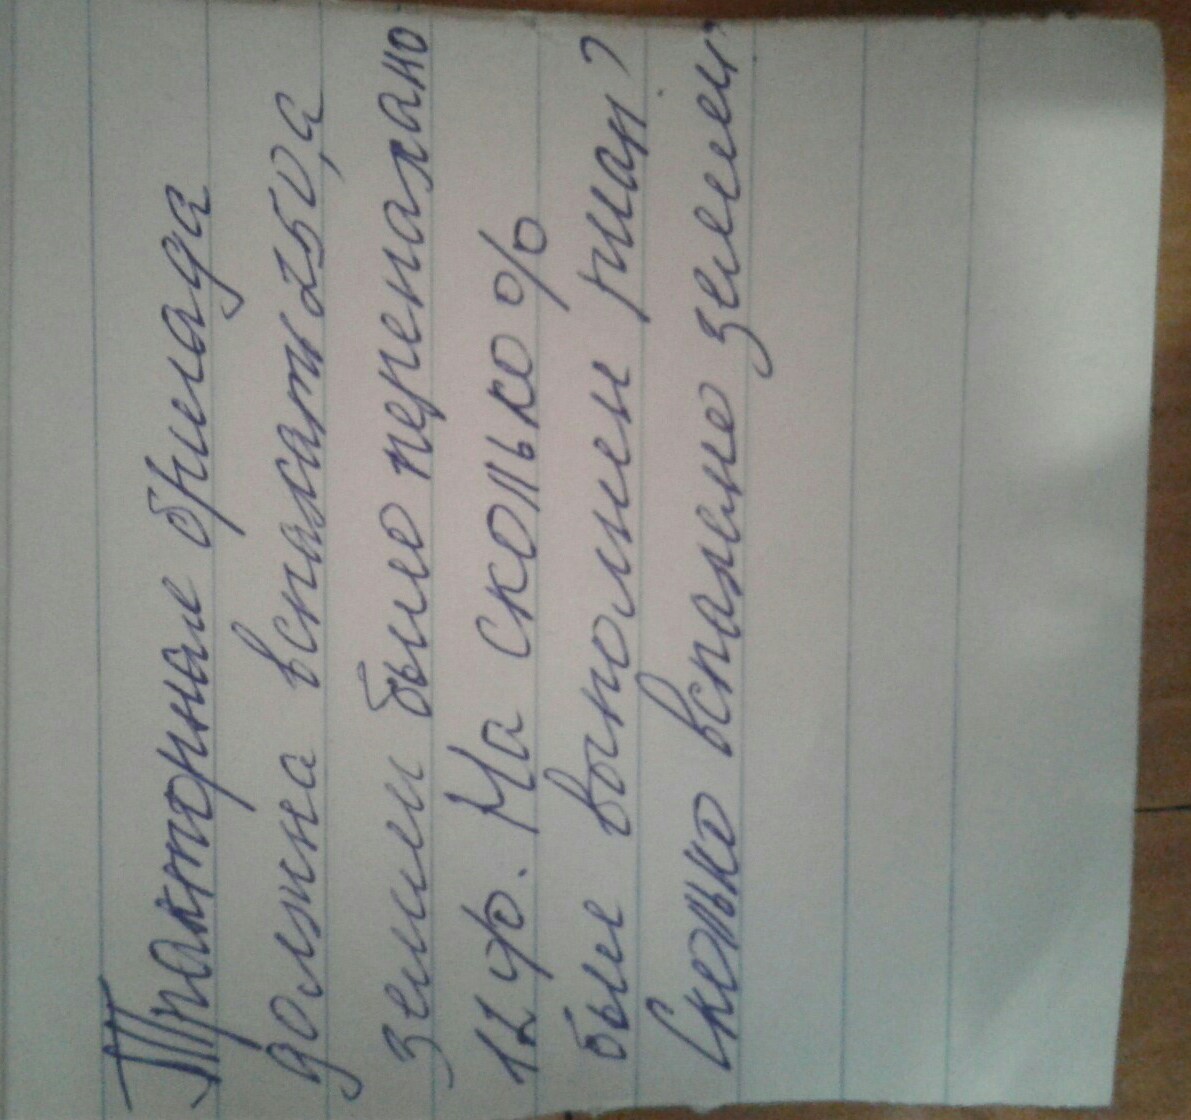 Тракторная бригада
должна вспахать 250, а
земли было перепахано
12 ф. На сколько %
был выполнен план?
Сколько вспахано земли?